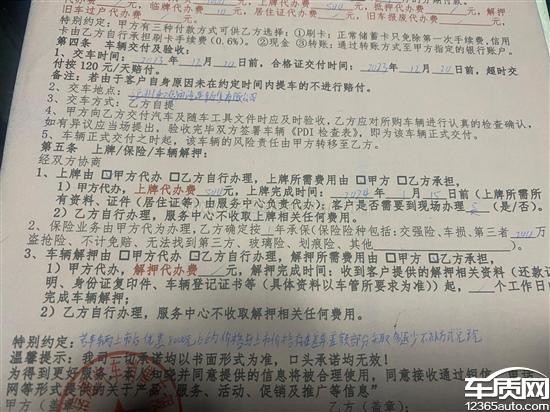 旧车过户代办费 临牌代办费 居住证代办费 旧车报废代办费
特别约定：甲方有三种付款方式可供乙方选择：①刷卡：正常储蓄卡只免除第一次手续费，信用
卡由乙方自行承担刷卡手续费（0.6%）。②现金 ③转账：通过转账方式至甲方指定的银行账户。
第四条 车辆交付及验收：
1、交车时间： 2023 年 12 月 20 日前，合格证交付时间： 2023 年 12 月 20 日前，超时交
付按 120 元/天赔付。
备注：若由于客户自身原因未在约定时间内提车的不进行赔付。
2、交车地点：
3、交车方式：乙方自提
4、甲方向乙方交付汽车及随车工具文件时应及时验收，乙方应对所购车辆进行认真的检查确认，
如有异议应当场提出，验收完毕双方签署车辆《PDI 检查表》，即为该车辆正式交付。
5、车辆正式交付之时起，该车辆的风险责任由甲方转移至乙方。
第五条 上牌/保险/车辆解押：
经双方协商
1、上牌由 ☑甲方代办 □乙方自行办理，上牌所需费用由 □甲方 ☑乙方承担，
1）甲方代办，上牌代办费 500 元，上牌完成时间： 2024 年 1 月 15 日前（上牌所需的所
有资料、证件（居住证等）由服务中心负责代办）；客户是否需要到现场办理 （是/否）。
2）乙方自行办理，服务中心不收取上牌相关任何费用。
2、保险业务由甲方代为办理，乙方确定按 1 年承保（保险险种包括：交强险、车损、第三者 200 万
盗抢险、不计免赔、无法找到第三方、玻璃险、划痕险、其他
3、车辆解押由 □甲方代办 □乙方自行办理，解押所需费用由 □甲方 □乙方承担，
1）甲方代办，解押代办费 / 元，解押完成时间：收到客户提供的解押相关资料（还款证
明、身份证复印件、车辆登记证书等（具体资料以车管所要求为准））起， / 个工作日内
完成车辆解押；
2）乙方自行办理，服务中心不收取解押相关任何费用。
特别约定：
温馨提示：我司一切承诺均以书面形式为准，口头承诺均无效！
为得到更好服务，本人知晓并同意提供的信息将被合理使用，同意接收通过短信、电话
网等形式提供的关于产品、服务、活动、促销及推广等信息”
甲方（盖章） 乙方（盖章）：
车质网
www.12365auto.com